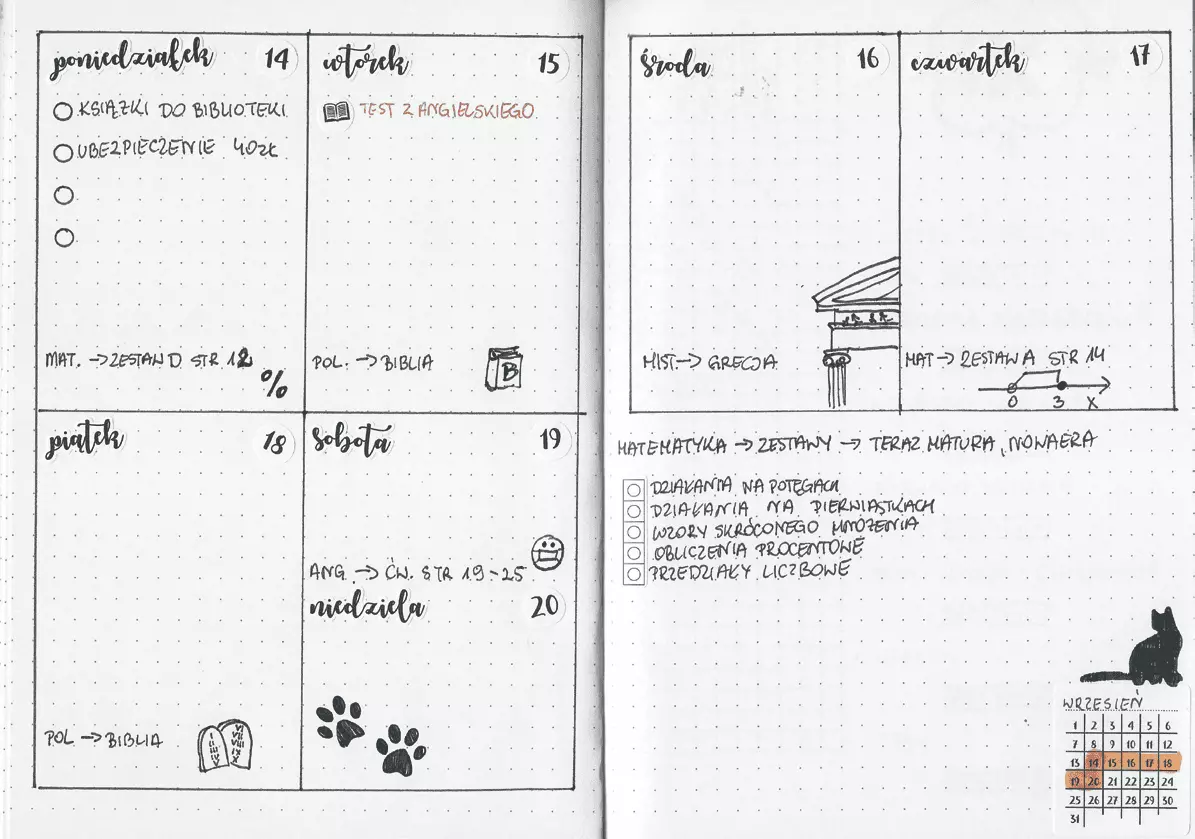 poniedziałek 14
KSIĄŻKI DO BIBLIOTEKI
UBEZPIECZENIE 40ZŁ
MAT. → ZESTAW D STR 12
%
wtorek 15
TEST Z ANGIELSKIEGO
POL. → BIBLIA
B
środa 16
HIST → GRECJA
czwartek 17
MAT → ZESTAW A STR 14
0 3 X
piątek 18
POL → BIBLIA
sobota 19
ANG → ĆW. STR 19-25
niedziela 20
MATEMATYKA → ZESTAWY → TERAZ MATURA, NOWA ERA
DZIAŁANIA NA POTĘGACH
DZIAŁANIA NA PIERWIASTKACH
WZORY SKRÓCONEGO MNOŻENIA
OBLICZENIA PROCENTOWE
PRZEDZIAŁY LICZBOWE
WRZESIEŃ
1 2 3 4 5 6
7 8 9 10 11 12
13 14 15 16 17 18
19 20 21 22 23 24
25 26 27 28 29 30
31